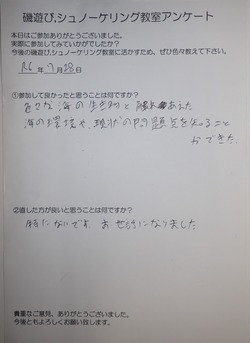 磯遊び,シュノーケリング教室アンケート
本日はご参加ありがとうございました。
実際に参加してみていかがでしたか？
今後の磯遊び,シュノーケリング教室に活かすため、ぜひ色々教えて下さい。
R6年7月28日
①参加して良かったと思うことは何ですか？
色々な海の生き物と触れあえた
海の環境や、現状の問題点を知ること
ができた
②直した方が良いと思うことは何ですか？
特にないです お世話になりました
貴重なご意見、ありがとうございました。
今後ともよろしくお願い致します。